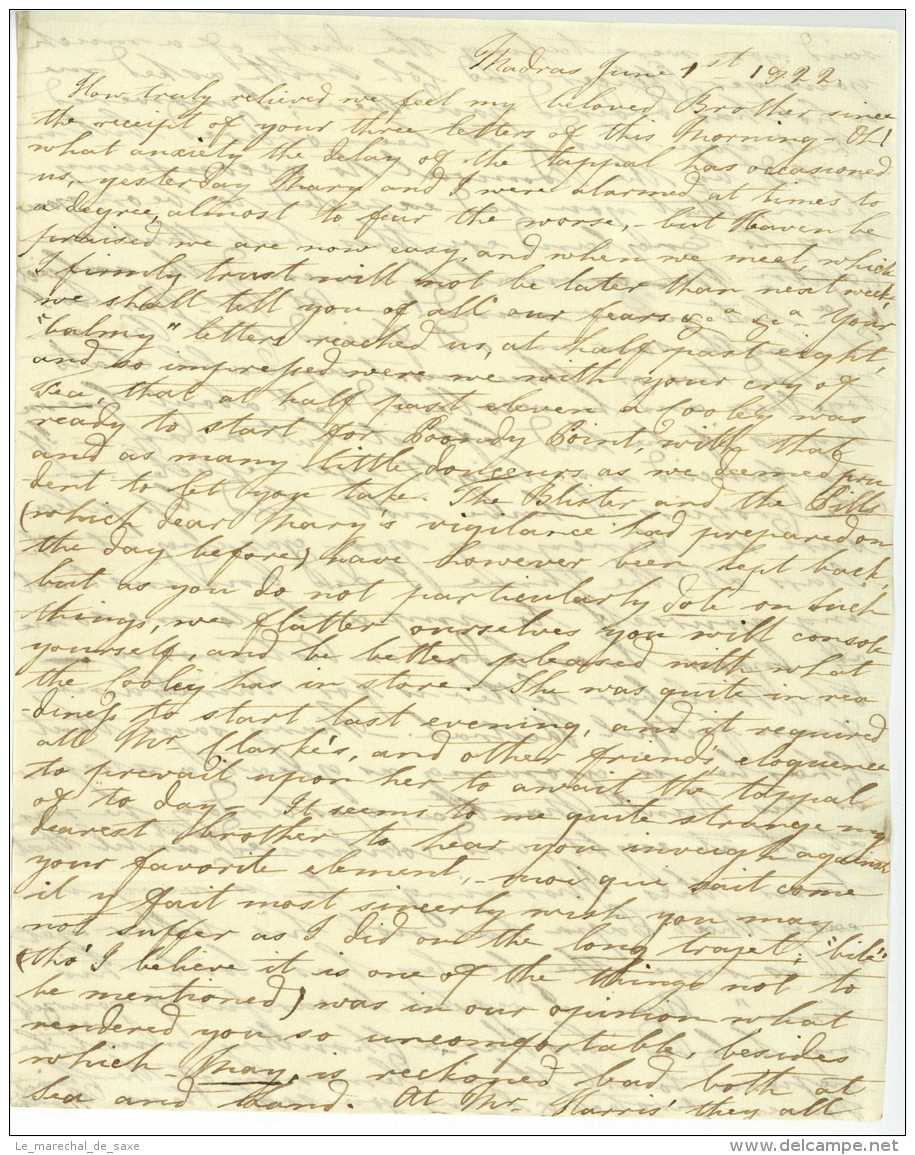 Madras June 1st 1822.
How truly relieved we feel my beloved Brother since
the receipt of your three letters of this Morning - Oh!
what anxiety the delay of the tappal has occasioned
us, - yesterday Mary and I were alarmed at times to
a degree, almost to fear the worse, - but Heaven be
praised we are now easy, and when we meet, which
I firmly trust will not be later than next week,
we shall tell you of all our fears &ca &ca Your
"balmy" letters reached us, at half past eight,
and so impressed were we with your cry of
Tea, that at half past eleven a Cooley was
ready to start for Coondy Point, with that
and as many little douceurs as we deemed pru
dent to let you take. The Blister and the Pills
(which dear Mary's vigilance had prepared on
the day before) have however been kept back,
but as you do not particularly dote on such
things, we flatter ourselves you will console
yourself, and be better pleased with what
the Cooley has in store. She was quite in rea
-diness to start last evening, and it required
all Mr Clarke's, and other friend's eloquence
to prevail upon her to await the tappal
of to day - It seems to me quite strange my
dearest Brother to hear you inveigh against
your favorite element, - moi que sait come
il y fait most sincerly wish you may
not suffer as I did on the long trajet; "bile"
(tho' I believe it is one of the things not to
be mentioned) was in our opinion what
rendered you so uncomfortable, besides
which May, is reckoned bad both at
Sea and Land. At Mr. Harris' they all
Le_marechal_de_saxe
delcampe.net